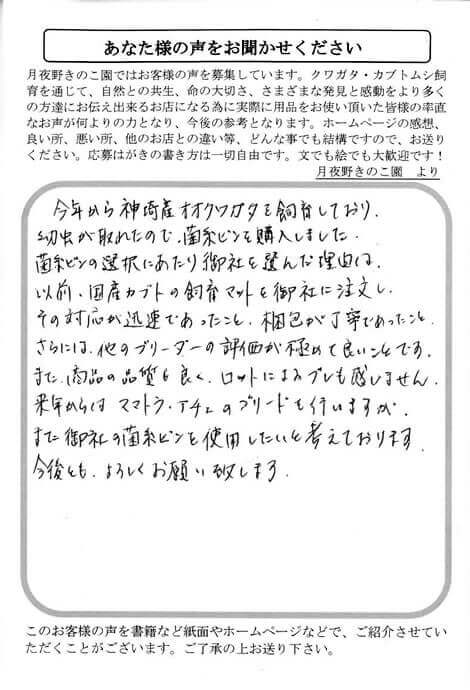 あなた様の声をお聞かせください
月夜野きのこ園ではお客様の声を募集しています。クワガタ・カブトムシ飼
育を通じて、自然との共生、命の大切さ、さまざまな発見と感動をより多く
の方達にお伝え出来るお店になる為に実際に用品をお使い頂いた皆様の率直
なお声が何よりの力となり、今後の参考となります。ホームページの感想、
良い所、悪い所、他のお店との違い等、どんな事でも結構ですので、お送り
ください。応募はがきの書き方は一切自由です。文でも絵でも大歓迎です！
月夜野きのこ園　より
今年から神埼産オオクワガタを飼育しており、
幼虫が取れたので、菌糸ビンを購入しました。
菌糸ビンの選択にあたり御社を選んだ理由は、
以前、国産カブトの飼育マットを御社に注文し、
その対応が迅速であったこと、梱包が丁寧であったこと、
さらには、他のブリーダーの評価が極めて良いことです。
また、商品の品質も良く、ロットによるブレも感じません。
来年からは ママトラ・アチェのブリードも行いますが、
また御社の菌糸ビンを使用したいと考えております。
今後とも、よろしくお願い致します。
このお客様の声を書籍など紙面やホームページなどで、ご紹介させてい
ただくことがございます。ご了承の上お送り下さい。